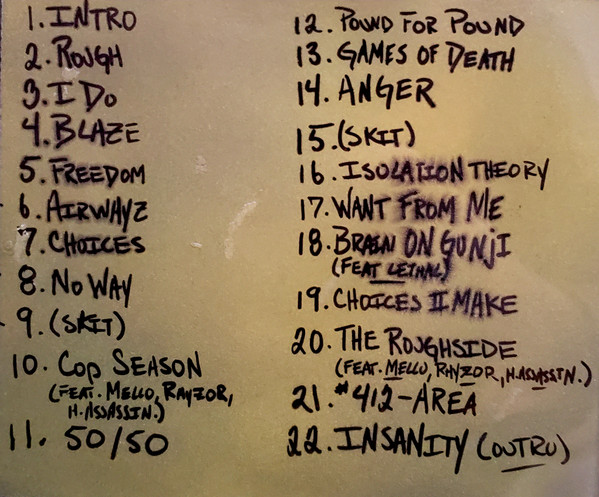 1. INTRO
2. ROUGH
3. I DO
4. BLAZE
5. FREEDOM
6. AIRWAYZ
7. CHOICES
8. NO WAY
9. (SKIT)
10. COP SEASON
(FEAT. MELLO, RAYZOR,
H. ASSASSIN.)
11. 50/50
12. POUND FOR POUND
13. GAMES OF DEATH
14. ANGER
15. (SKIT)
16. ISOLATION THEORY
17. WANT FROM ME
18. BRAIN ON GUNJI
(FEAT LETHAL)
19. CHOICES II MAKE
20. THE ROUGHSIDE
(FEAT. MELLO, RHYZOR, H.ASSASSIN.)
21. #412-AREA
22. INSANITY (OUTRO)